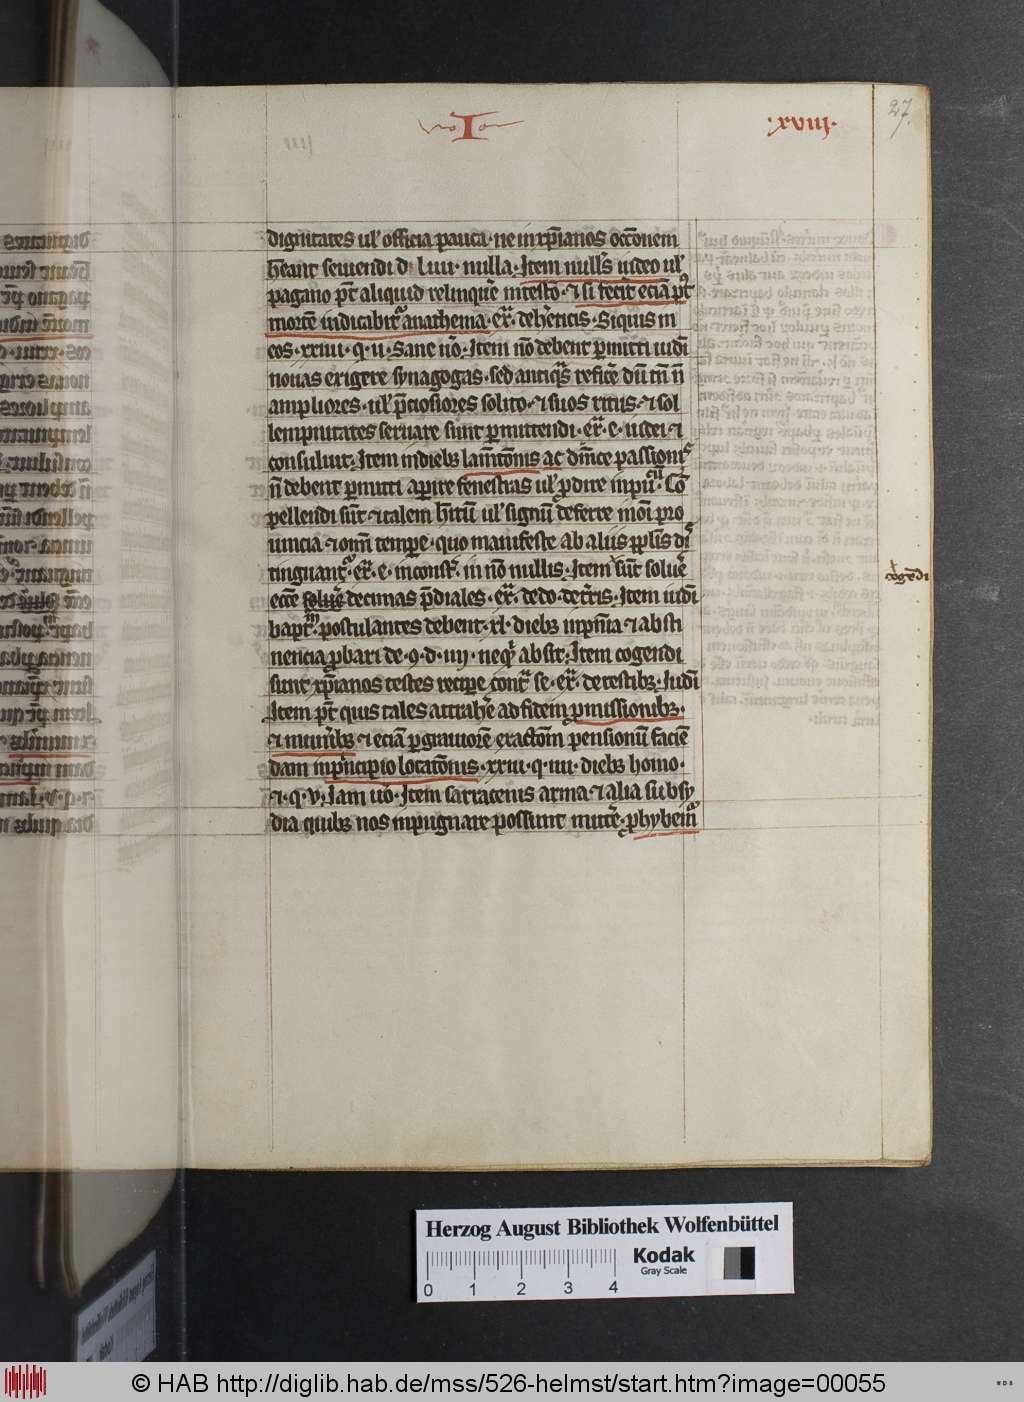 I
·xviij·
27.
dignitates ul' officia pauca· ne in xp̄ianos occōnem
h̄eant seuiendi d· liiii· nulla· Item null's iudeo ul'
pagano pt̄ aliquid relinque̅ in testo̅· ⁊ si fecit̄ ecia̅ pꝰt
morte̅ iudicabit̄ anathema· ex̄· de he̅ticis· Siquis in
eos· xxiiii· q· ii· Sane u̅o· Item no̅ debent p̄mitti iud̅i
nouas erigere synagogas· sed antiqᵃs refice̅ du̅ tn̅ n̅
ampliores· ul' p̄ciosiores solito· ⁊ suos ritus· ⁊ sol
lempnitates seruare sunt p̄mittendi· ex̄· e· iudei· ⁊
consuluit· Item in diebꝫ lam̅to̅nis ac dn̅ice passionis
n̅ debent p̄mitti ap̄ire fenestras ul' p̄dire in pu̅· Co̅
pellendi su̅t ⁊ talem h̅itu̅ ul' signu̅ deferre in o̅i pro
uincia ⁊ om̅i tempe̅· quo manifeste ab aliis pp̅lis di
tinguant̄· ex̄· e· in co̅st̅· in no̅ nullis· Item su̅t solue̅
ecc̄e solue̅ decimas p̄diales· ex̄· de do· dec̄is· Item iud̅i
bapt̄· postulantes debent· xl· diebꝫ in pn̅ia ⁊ absti
nencia p̄bari de· 9· d· iiij· neqꝫ absit· Item cogendi
sunt xp̄ianos testes recipe̅ cont̄ se· ex̄· de testibꝫ· Iud̅i
Item pt̄ quis tales attrahe̅ ad fidem p̄missionibꝫ·
⁊ mun̅ibꝫ ⁊ ecia̅ p̄ grauiore̅ exacto̅m pensionu̅ facie̅
dam in pn̅cipio locato̅nis· xxiii· q· iiii· diebꝫ homo·
⁊· q· v· Iam u̅o· Item sarracenis arma ⁊ alia subsy
dia quibꝫ nos inpugnare possunt mitte̅· p̄hybem̅ꝰ
cogēdi
Herzog August Bibliothek Wolfenbüttel
Kodak
Gray Scale
0 1 2 3 4
© HAB http://diglib.hab.de/mss/526-helmst/start.htm?image=00055